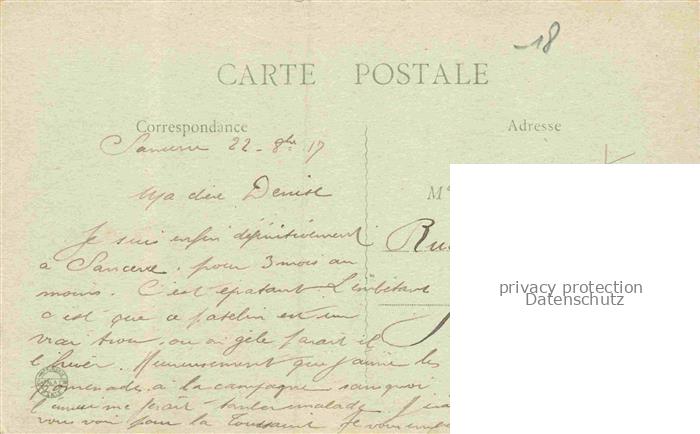 18
CARTE POSTALE
Correspondance
Adresse
Sancerre 22 - 8bre 17
Ma chère Denise
M
Je suis enfin définitivement
Ru
à Sancerre, pour 3 mois au
moins. C'est épatant L'embêtant
c'est que ce patelin est un
vrai trou, où on gèle paraît il
l'hiver. Heureusement que j'aime les
promenades à la campagne sans quoi
l'ennui me ferait tomber malade. J'irai
vous voir pour la Toussaint Je vous
privacy protection
Datenschutz